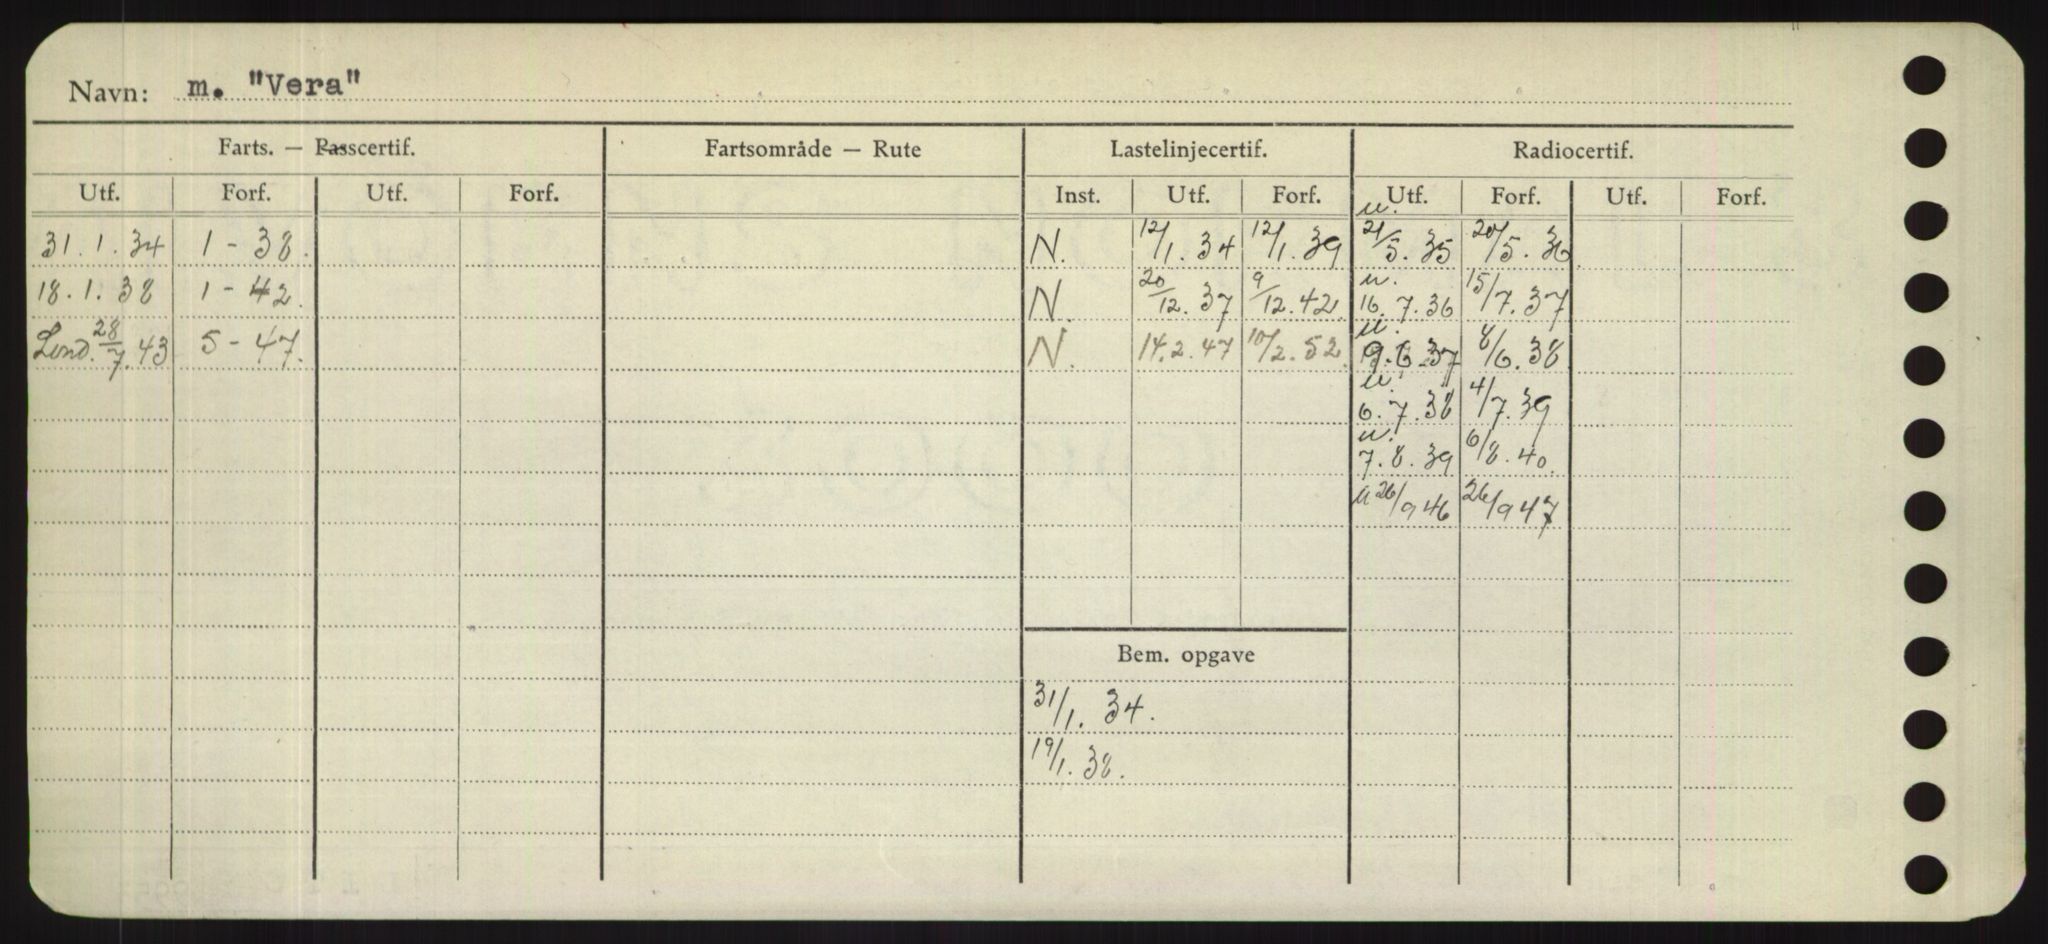 Navn: m. "Vera"
Farts. — Passcertif. Fartsområde — Rute Lastelinjecertif. Radiocertif.
Utf. Forf. Utf. Forf. Inst. Utf. Forf. Utf. Forf. Utf. Forf.
31.1.34 1-38. N. 12/1.34 12/1.39 u. 21/5.35 20/5.36
18.1.38 1-42. N. 20/12.37 9/12.42. u. 16.7.36 15/7.37
Lond. 28/7.43 5-47. N. 14.2.47 10/2.52. u. 9.6.37 8/6.38
u. 6.7.38 4/7.39
u. 7.8.39 6/8.40.
u 26/9 46 26/9 47
Bem. opgave
31/1.34.
19/1.38.